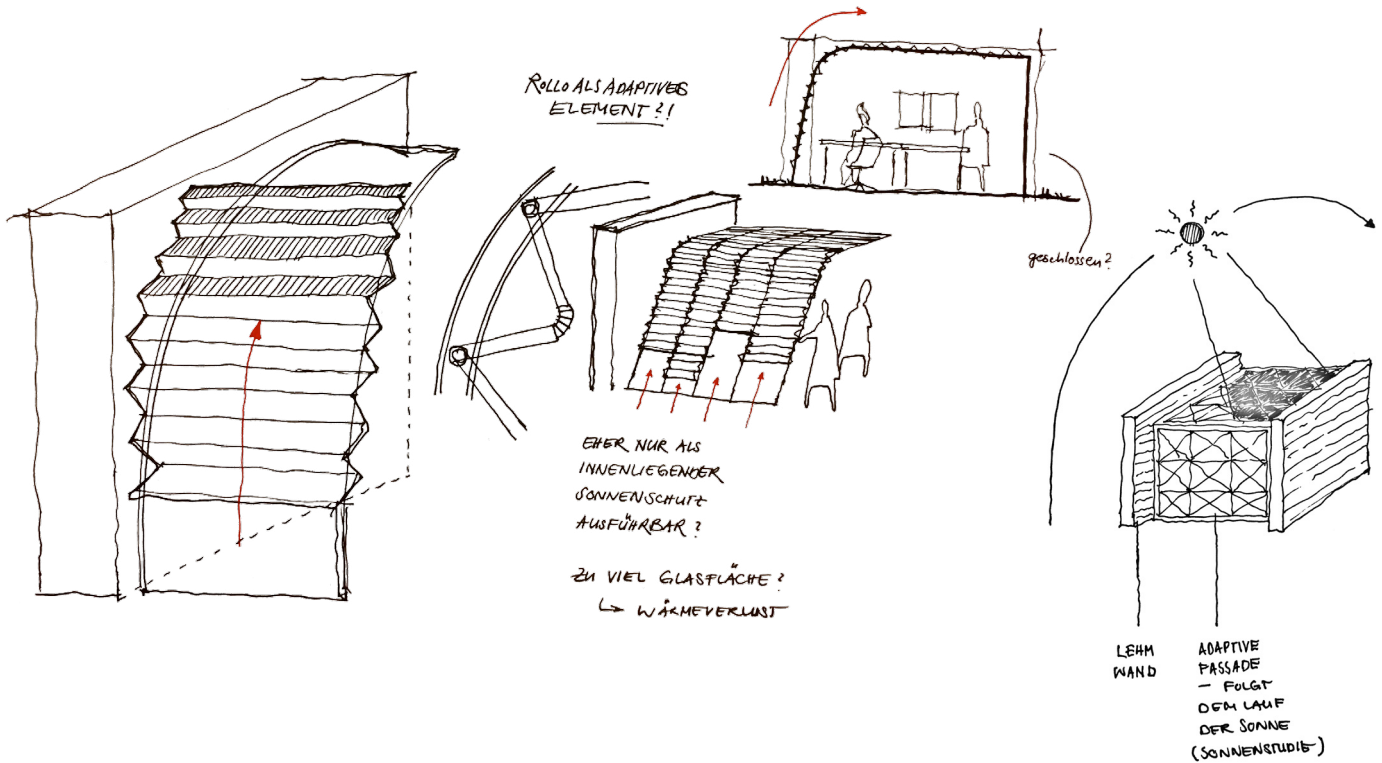 ROLLO ALS ADAPTIVES
ELEMENT?!
geschlossen?
EHER NUR ALS
INNENLIEGENDER
SONNENSCHUTZ
AUSFÜHRBAR?
ZU VIEL GLASFLÄCHE?
↳ WÄRMEVERLUST
LEHM
WAND
ADAPTIVE
FASSADE
– FOLGT
DEM LAUF
DER SONNE
(SONNENSTUDIE)